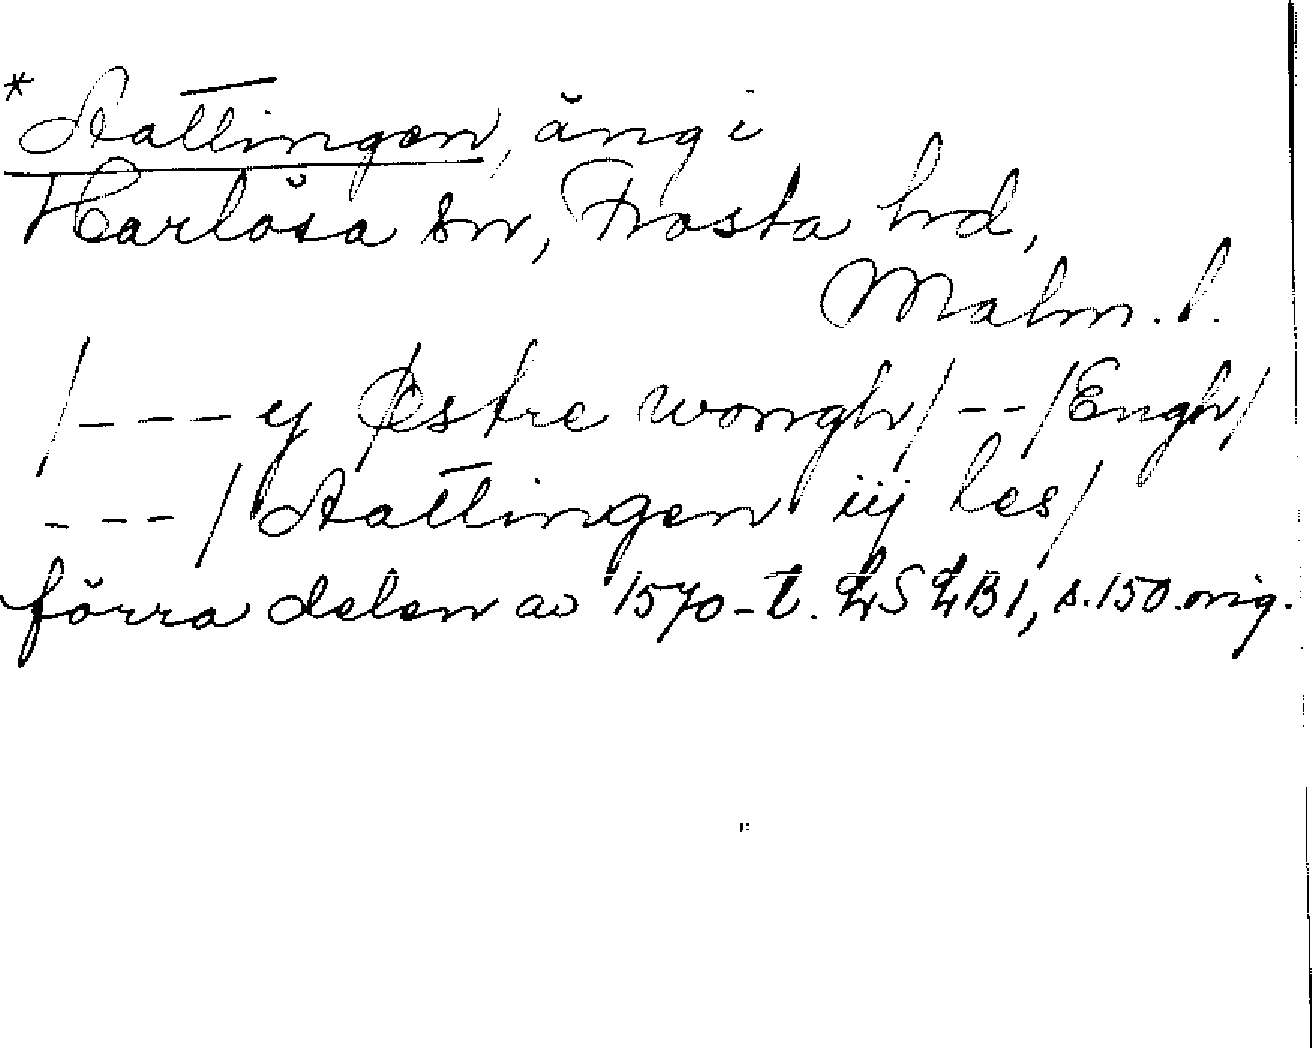 *Stattingen, äng i
Harlösa sn, Frosta hd,
Malm. l.
/---y Østre wongh/--/Engh/
---/Stattingen iij les/
förra delen av 1570-t. LSLB1, s.150.orig.